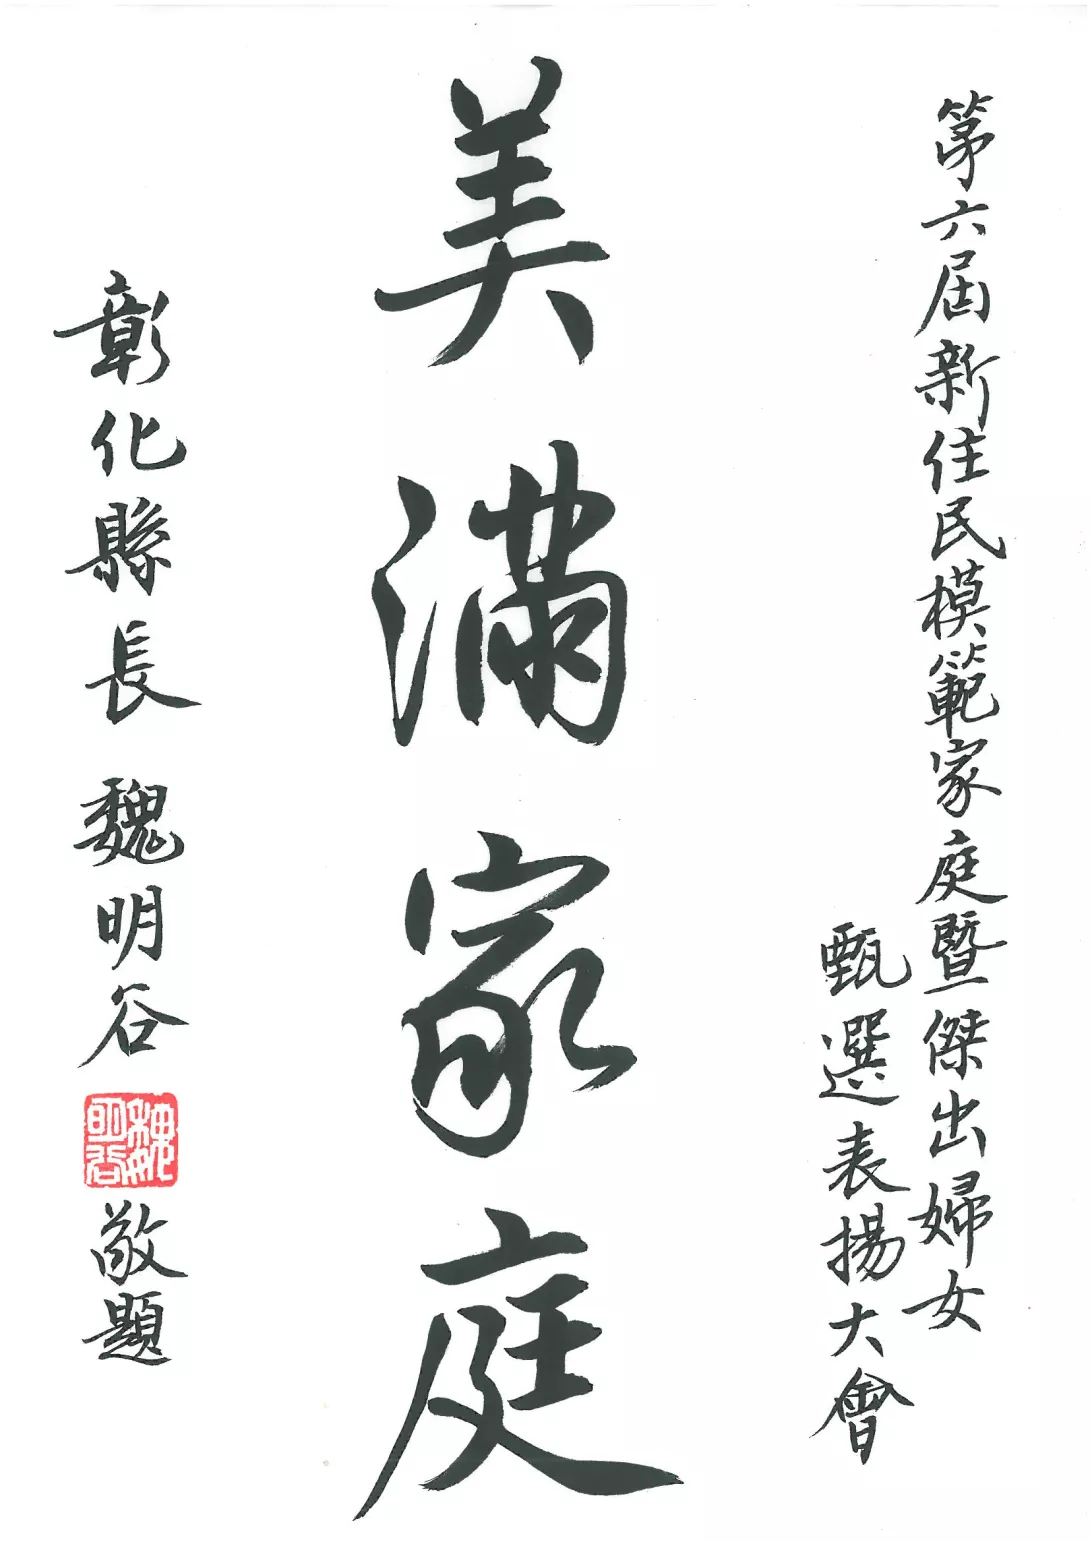 第六屆新住民模範家庭暨傑出婦女
甄選表揚大會
美滿家庭
彰化縣長 魏明谷
魏明谷
敬題